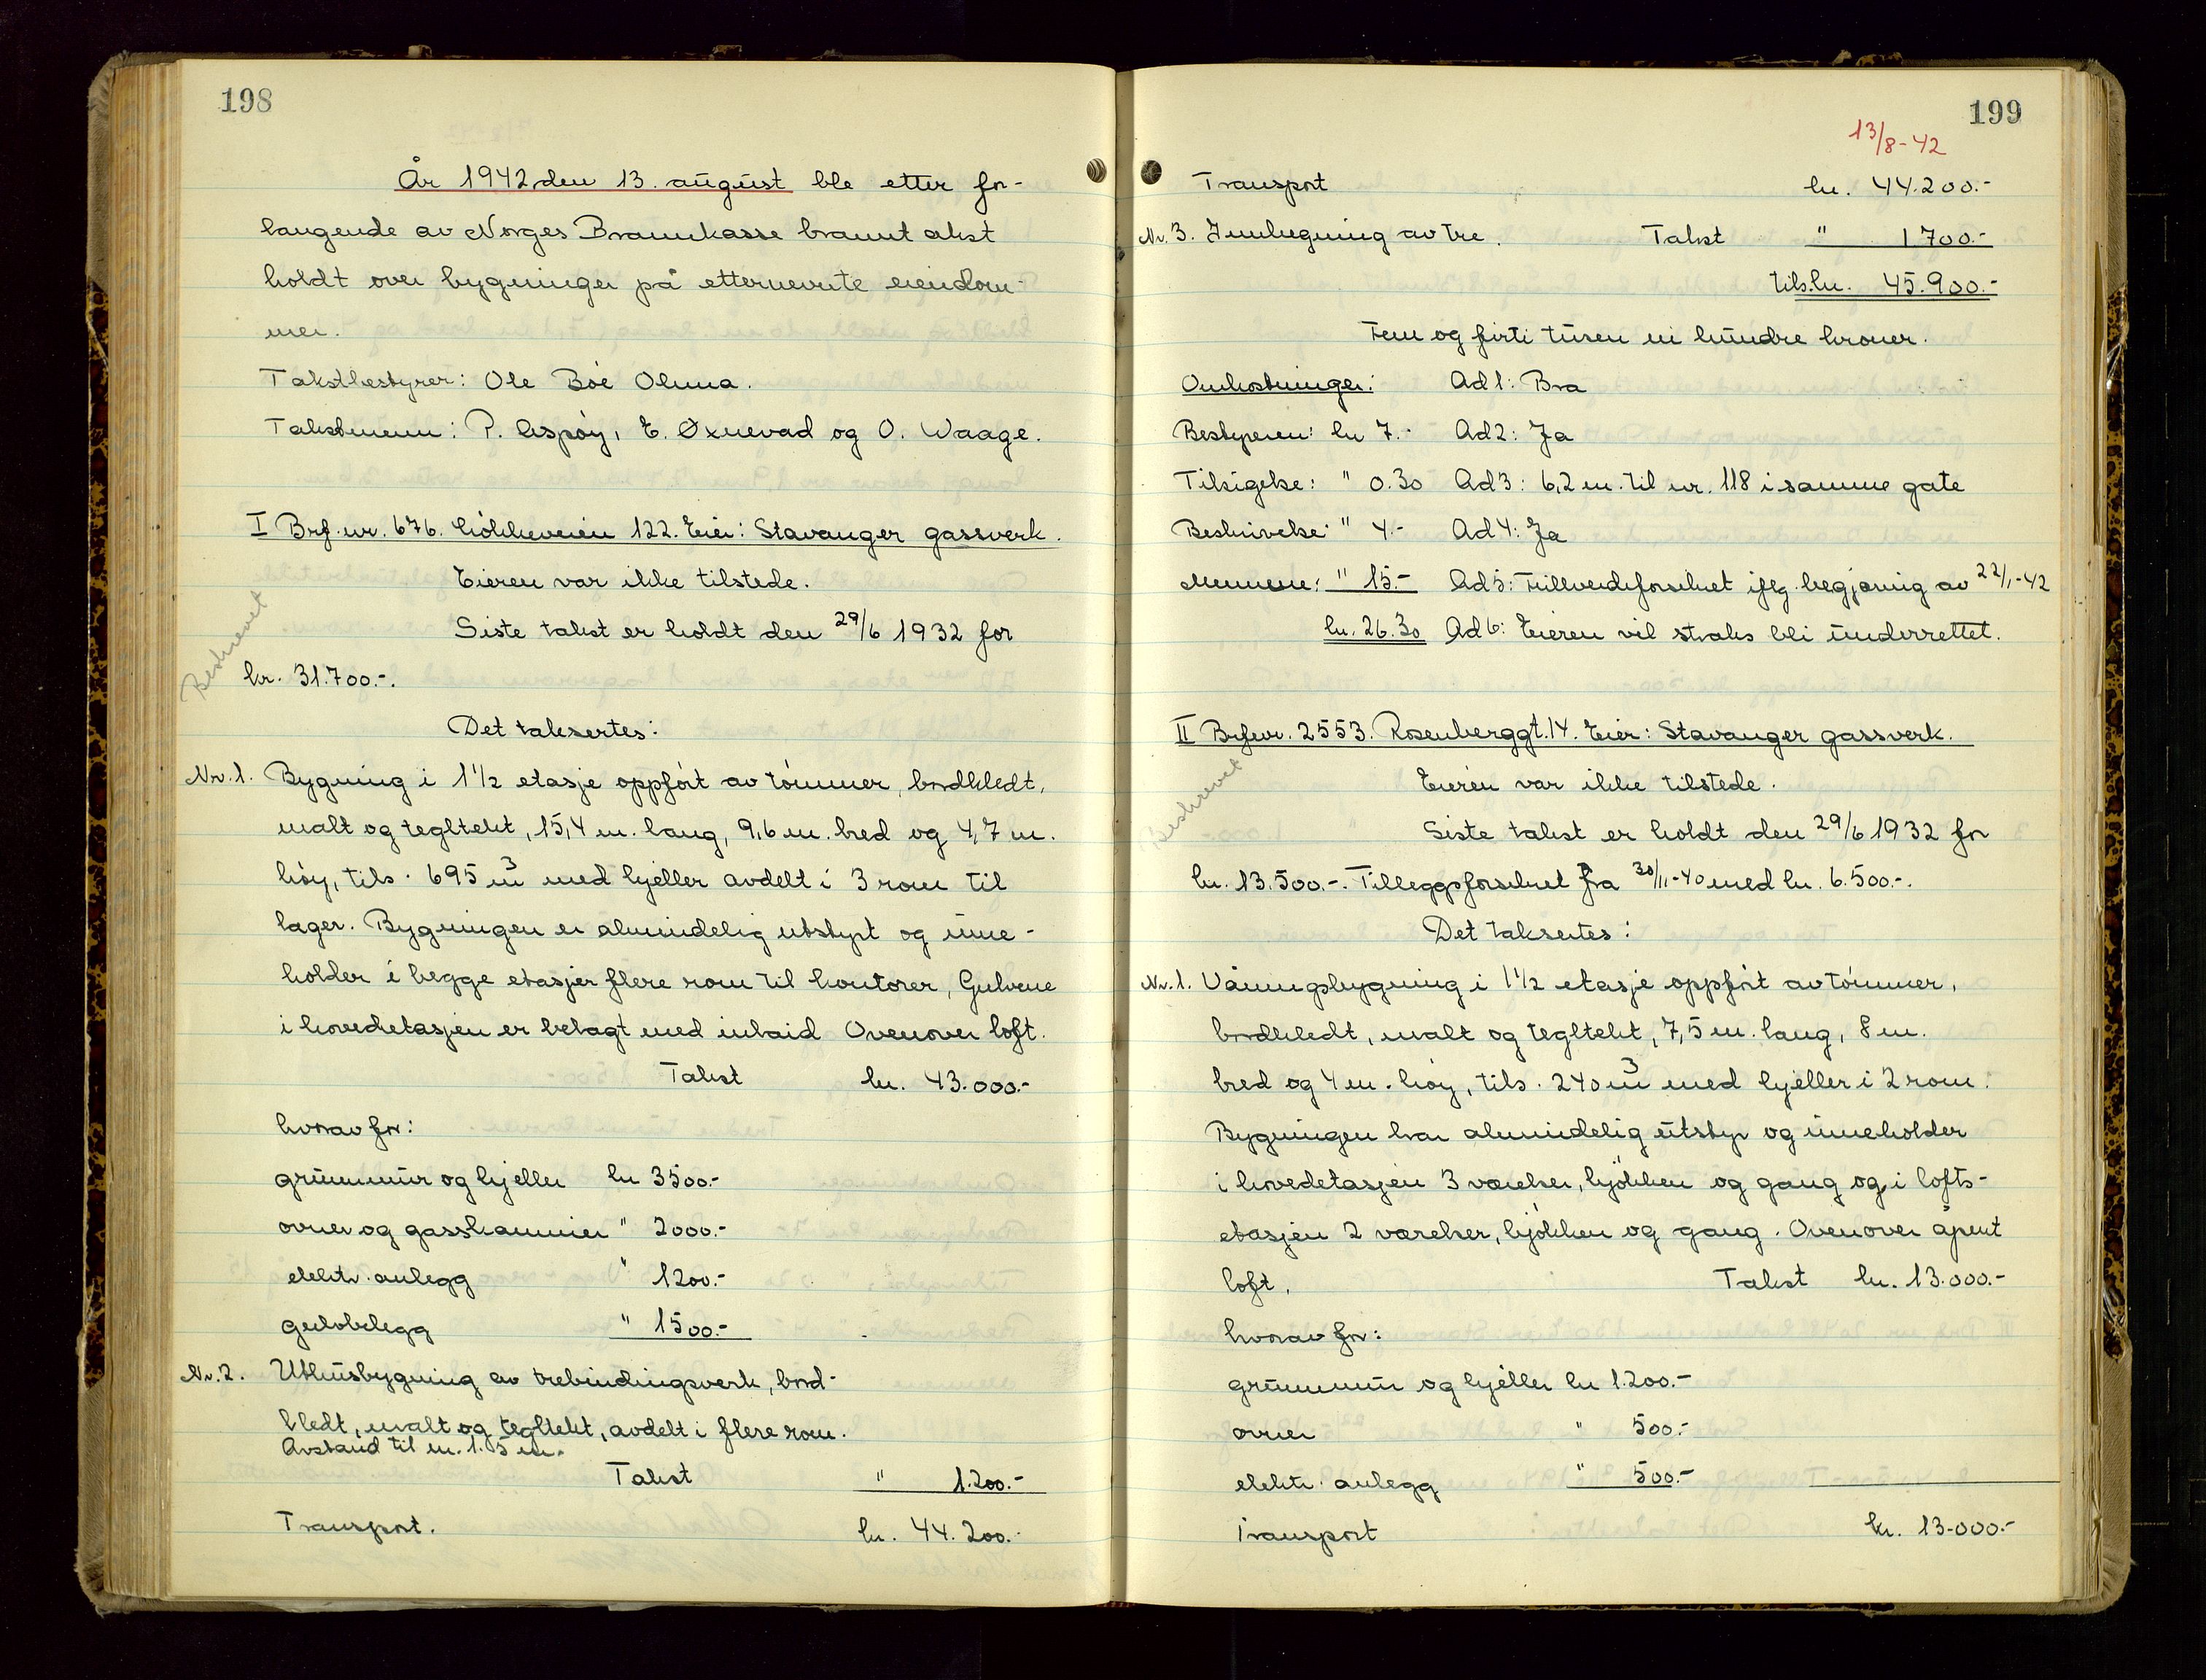 198
År 1942 den 13. august ble etter for-
langende av Norges Brannkasse branntakst
holdt over bygninger på etternevnte eiendom-
mer.
Takstbestyrer: Ole Bøe Olsen.
Takstmenn: P. Aspøy, E. Øxnevad og O. Waage.
I Brf. nr. 676. Løkkeveien 122. Eier: Stavanger gassverk.
Eieren var ikke tilstede.
Siste takst er holdt den 29/6 1932 for
kr. 31.700.-.
Beskrevet
Det taksertes:
Nr. 1. Bygning i 1 1/2 etasje oppført av tømmer, bordkledt,
malt og tegltekt, 15,4 m. lang, 9,6 m. bred og 4,7 m.
høy, tils. 695 m3 med kjeller avdelt i 3 rom til
lager. Bygningen er almindelig utstyrt og inne-
holder i begge etasjer flere rom til kontorer, Gulvene
i hovedetasjen er belagt med inlaid Ovenover loft.
Takst kr. 43.000.-
hvorav for:
grunnmur og kjeller kr 3500.-
ovner og gasskaminer " 2000.-
elektr. anlegg " 1200.-
gulvbelegg " 1500.-
Nr. 2. Uthusbygning av trebindingsverk, bord-
kledt, malt og tegltekt, avdelt i flere rom.
Avstand til nr. 1. 5 m.
Takst " 1.200.-
Transport. kr. 44.200.-
199
13/8-42
Transport kr. 44.200.-
Nr. 3. Innhegning av tre. Takst " 1700.-
tils. kr. 45.900.-
Fem og firti tusen ni hundre kroner.
Omkostninger: Ad 1: Bra
Bestyreren: kr 7.- Ad 2: Ja
Tilsigelse: " 0.30 Ad 3: 6,2 m. til nr. 118 i samme gate
Beskrivelse: " 4.- Ad 4: Ja
Mennene: " 15.- Ad 5: Fullverdiforsikret iflg. begjæring av 22/1-42
kr. 26.30 Ad 6: Eieren vil straks bli underrettet.
II Brf. nr. 2553. Rosenberggt. 14. Eier: Stavanger gassverk.
Eieren var ikke tilstede.
Beskrevet
Siste takst er holdt den 29/6 1932 for
kr. 13.500.-. Tilleggsforsikret fra 30/11-40 med kr. 6.500.-.
Det taksertes:
Nr. 1. Våningsbygning i 1 1/2 etasje oppført av tømmer,
bordkledt, malt og tegltekt, 7,5 m. lang, 8 m.
bred og 4 m. høy, tils. 240 m3 med kjeller i 2 rom.
Bygningen har almindelig utstyr og inneholder
i hovedetasjen 3 værelser, kjøkken og gang og i lofts-
etasjen 2 værelser, kjøkken og gang. Ovenover åpent
loft. Takst kr. 13.000.-
hvorav for:
grunnmur og kjeller kr 1.200.-
ovner " 500.-
elektr. anlegg " 500.-
Transport kr. 13.000.-